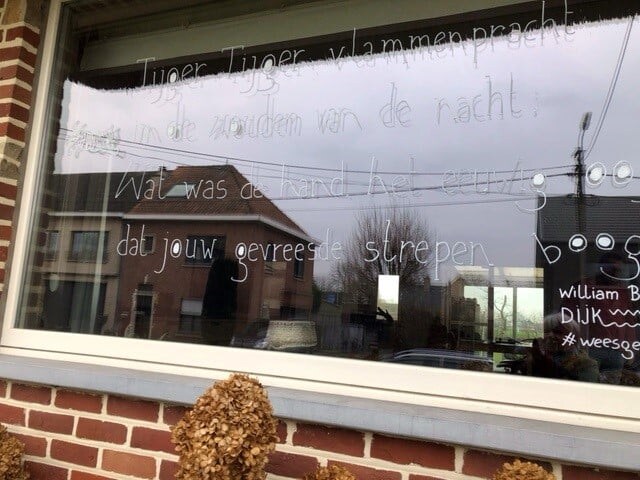 Tijger Tijger, vlammenpracht
in de wouden van de nacht:
Wat was de hand, het eeuwig oo
dat jouw gevreesde strepen boog
William B
DIJK
#weesge